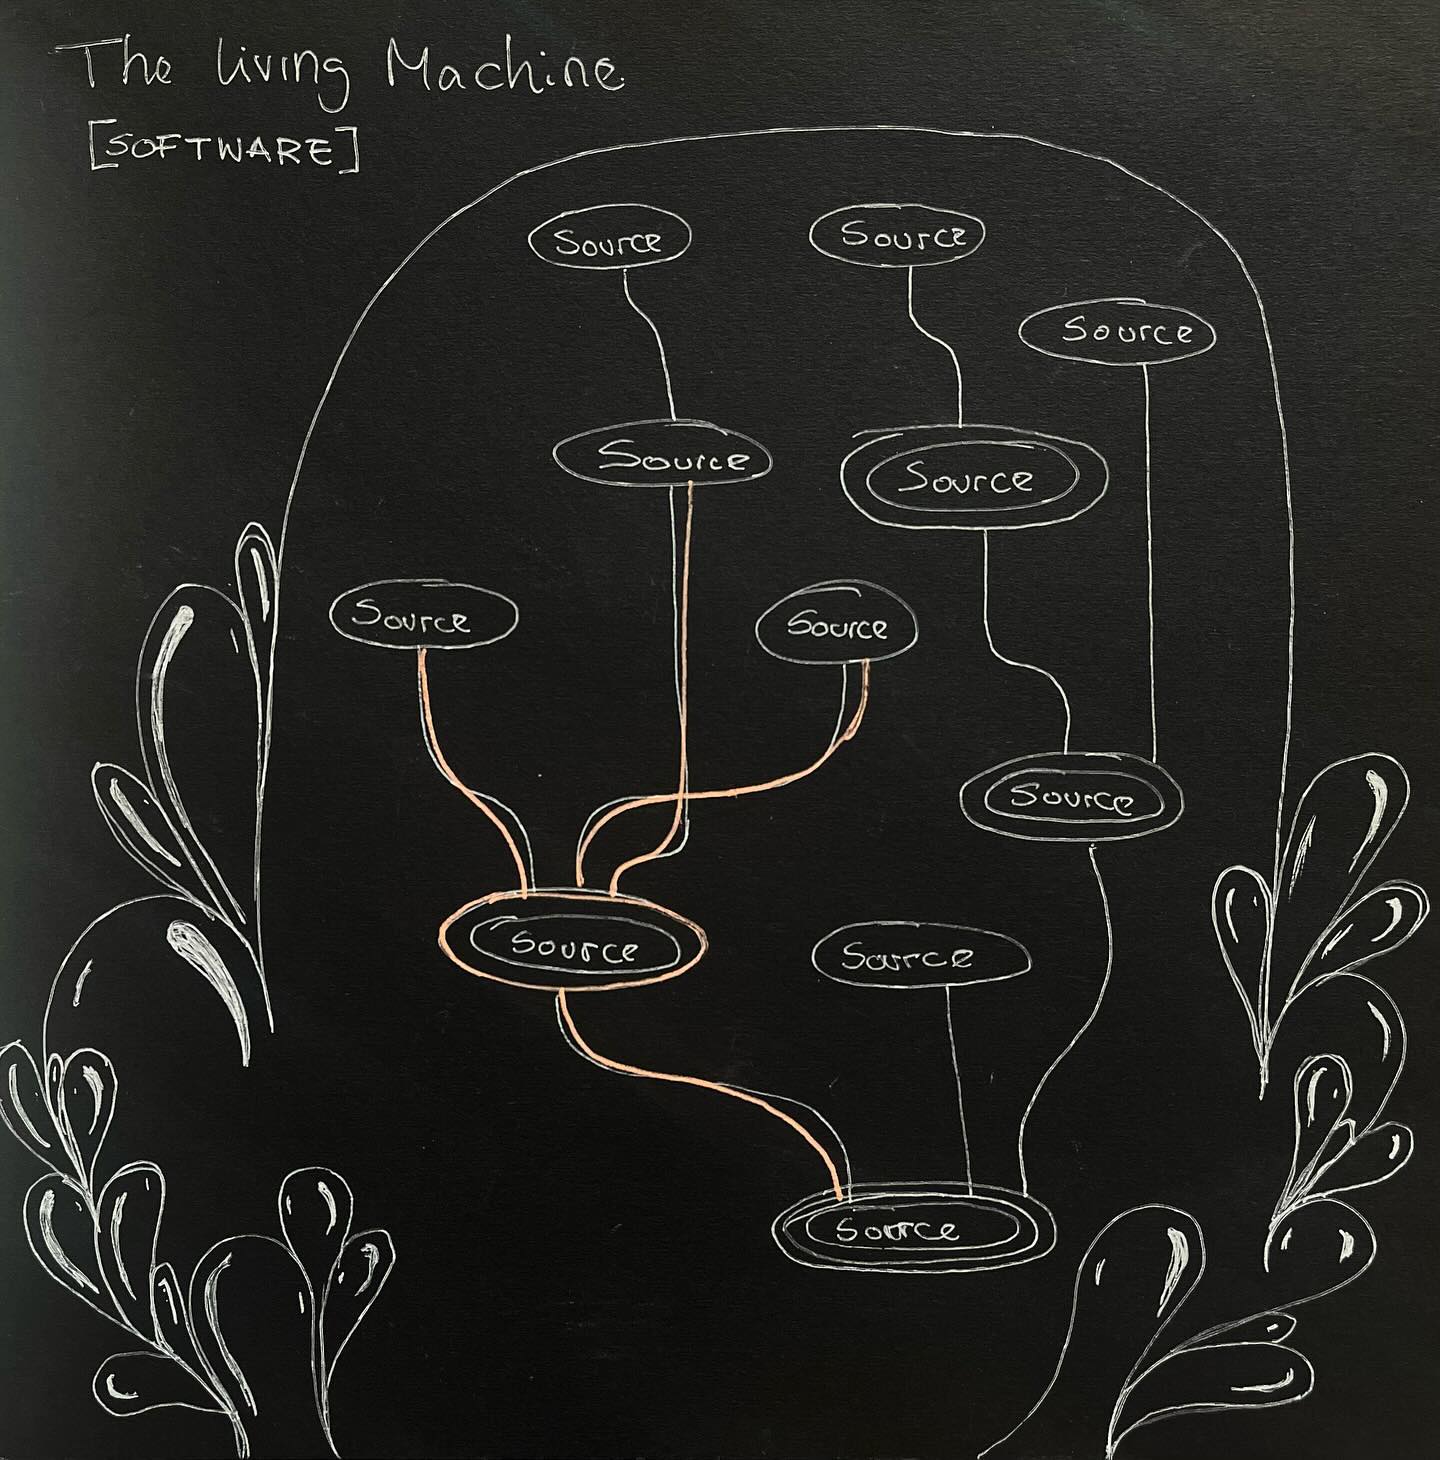 The Living Machine
[SOFTWARE]
Source
Source
Source
Source
Source
Source
Source
Source
Source
Source
Source